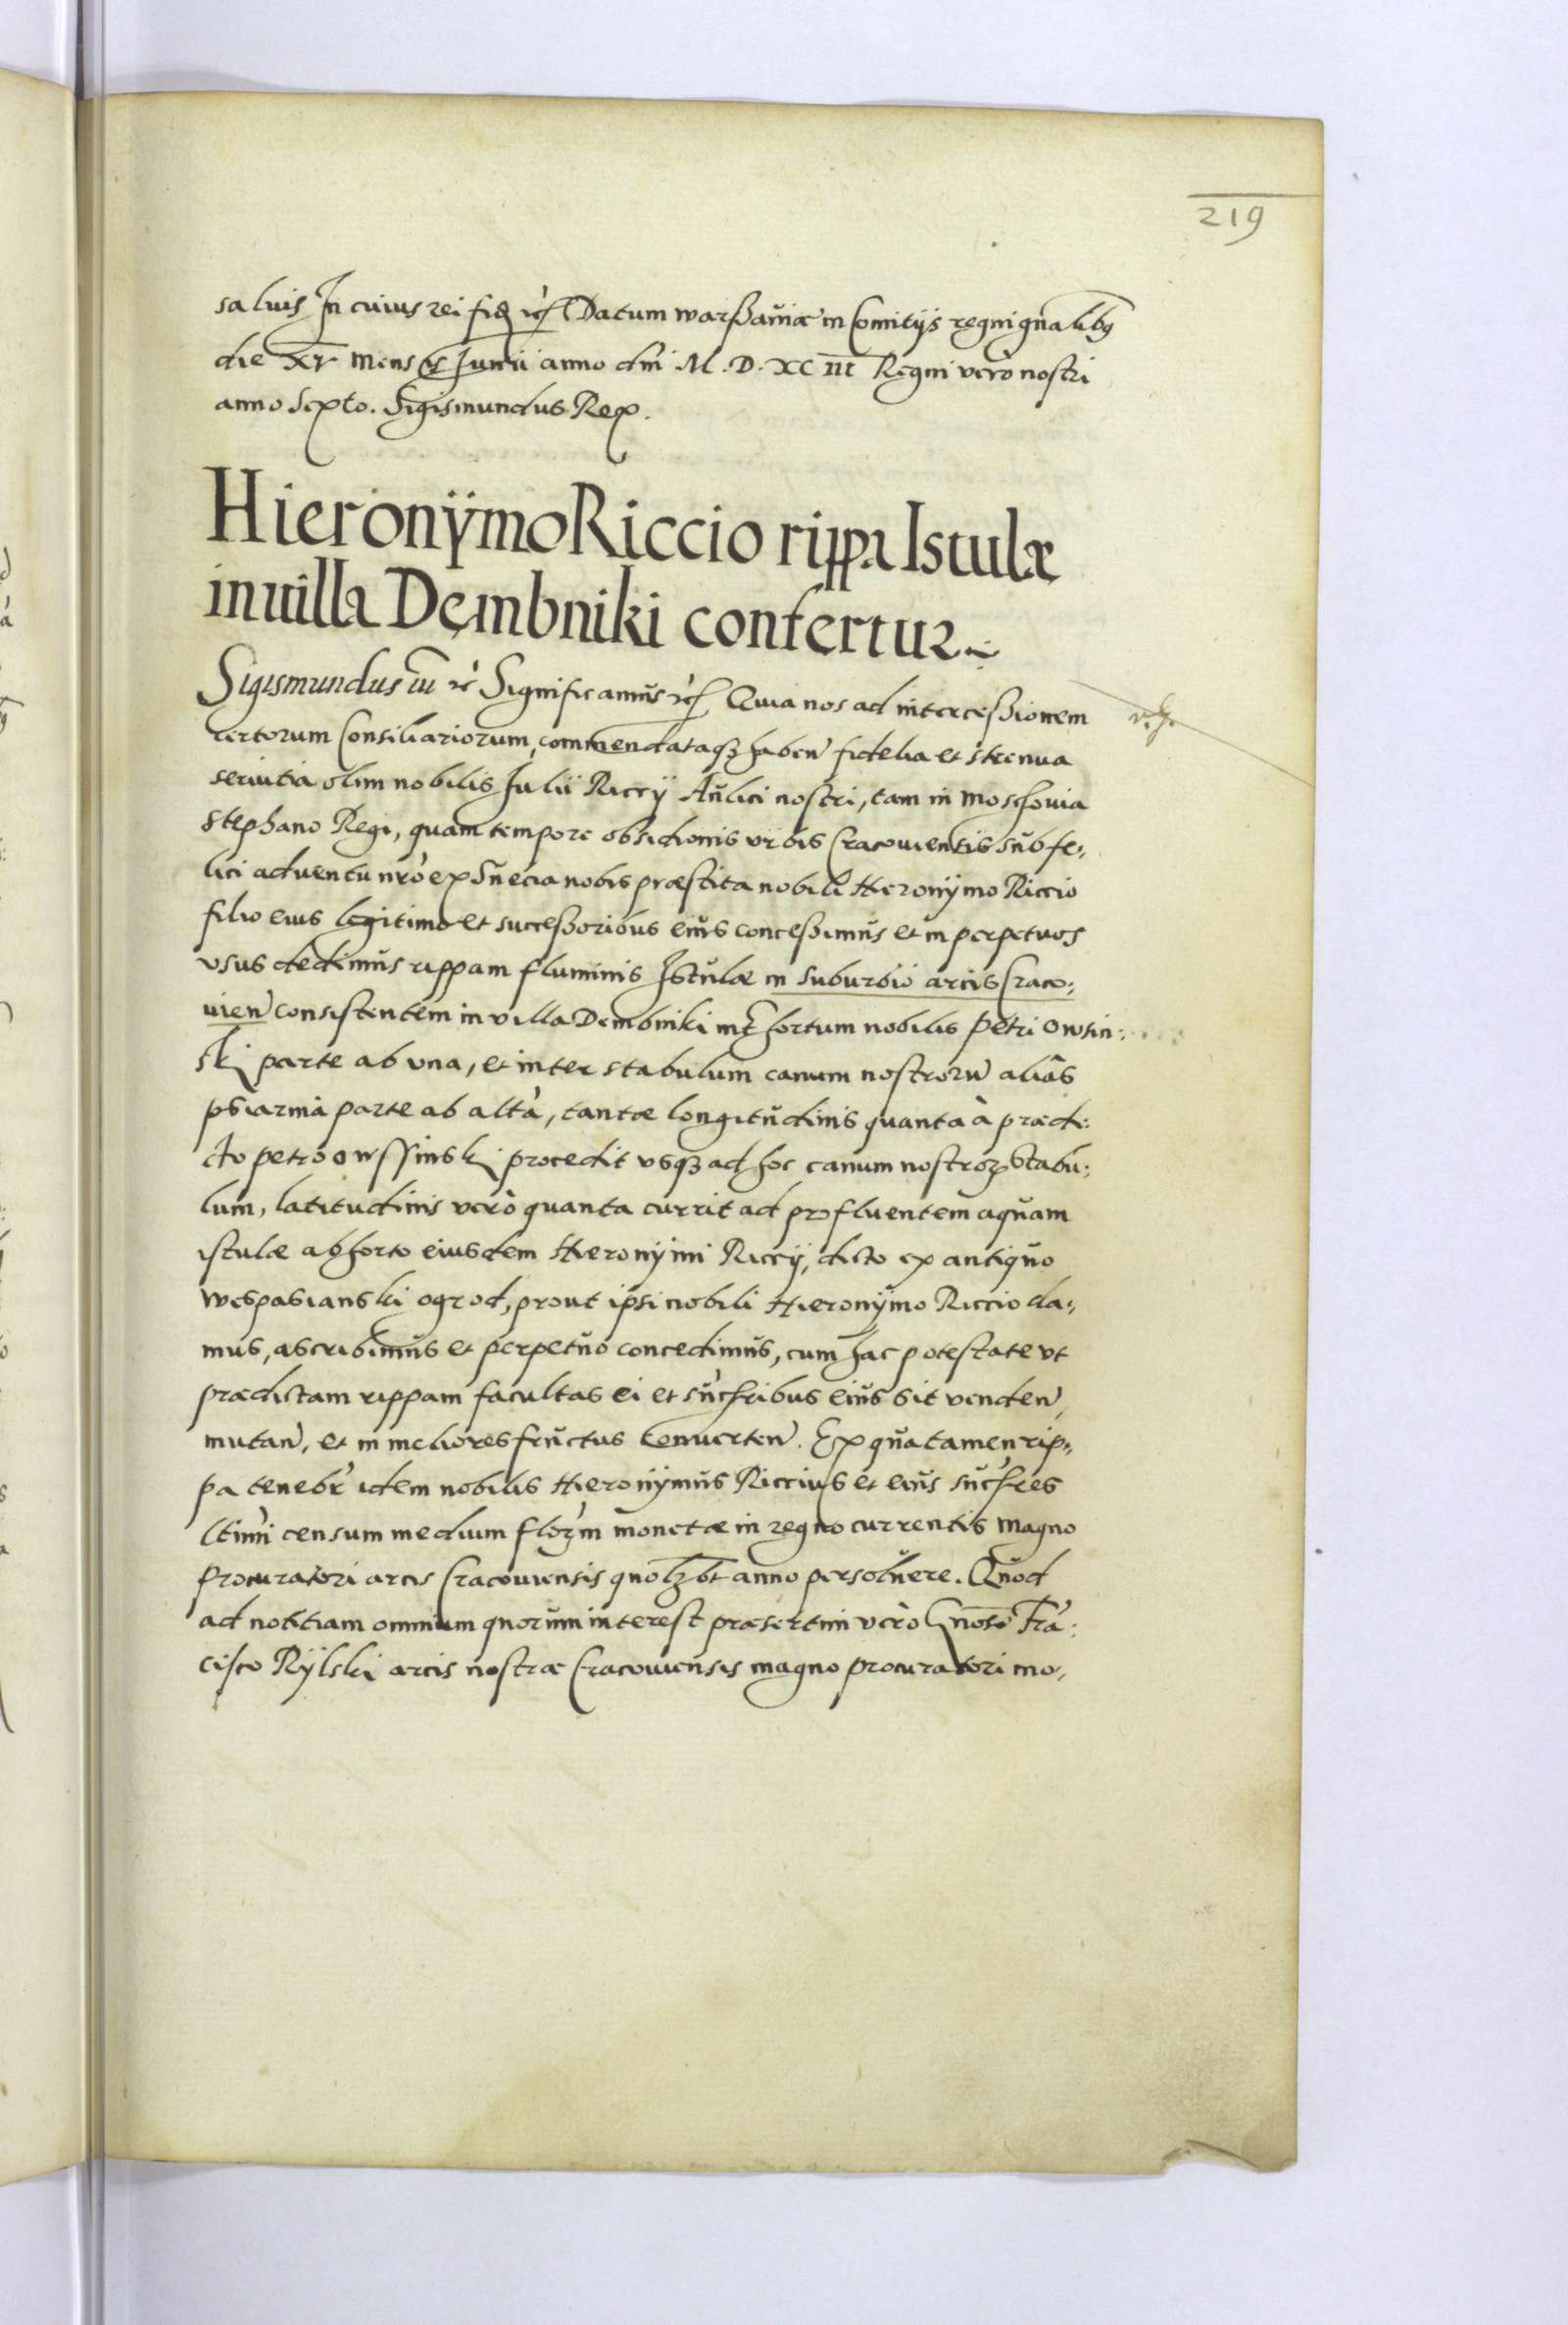 219
saluis In cuius rei fid etc Datum warßauiæ in Comitijs regni gnalibq
die XV Mensis Junii anno dni M.D.XCIII Regni vero nostri
anno Sexto. Sigismundus Rex.
Hieronÿmo Riccio rippa Istulæ
in uilla Dembniki confertur
Sigismundus iii etc Significamus etc Quia nos ad interceßionem
certorum Consiliariorum, commendataq3 haben fidelia et strenua
seruitia olim nobilis Julii Riccij Aulici nostri, tam in Moschouia
Stephano Regi, quam tempore obsidionis vrbis Cracouiensis sub fe,
lici aduentu nro ex Suecia nobis præstita nobili Hieronijmo Riccio
filio eius legitimo et succeßoribus eius conceßimus et in perpetuos
vsus dedimus rippam fluminis Istulæ in suburbio arcis Craco:
uien consistentem in villa Dembniki int hortum nobilis Petri Owsin:
ski parte ab vna, et inter stabulum canum nostroru aliâs
psiarnia parte ab alta, tantæ longitudinis quanta à prædi:
cto petro owssinski procedit vsq3 ad hoc canum nostroꝝ stabu:
lum, latitudinis verò quanta currit ad profluentem aquam
istulæ ab horto eiusdem Hieronijmi Riccij, dicto ex antiquo
Wespasianski ogrod, prout ipsi nobili Hieronijmo Riccio da,
mus, ascribimus et perpetuo concedimus, cum hac potestate vt
prædictam rippam facultas ei et succribus eius sit venden,
mutan, et in meliores fructus conuerten. Ex qua tamen rip,
pa tenebr idem nobilis Hieronijmus Riccius et eius succres
ltimi censum medium floꝝm monetæ in regno currentis magno
Procuratori arcis Cracouiensis quolꝫbt anno persoluere. Quod
ad notitiam omnium quorum interest præsertim verò Gnoso Frã:
cisco Rÿlski arcis nostræ Cracouiensis magno procuratori mo,